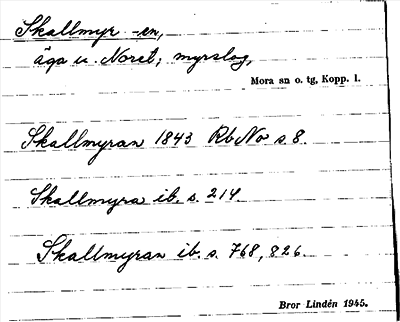 Skallmyr -en,
äga u. Noret; myrslog,
Mora sn o. tg, Kopp. l.
Skallmyran 1843 Rb No s. 8.
Skallmyra ib. s. 214.
Skallmyran ib. s. 768, 826.
Bror Lindén 1945.